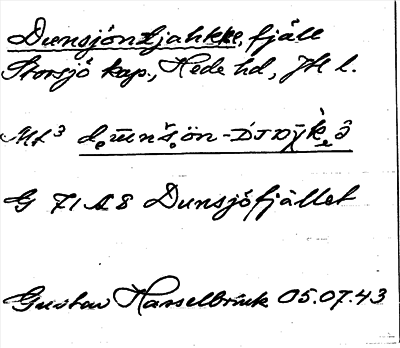 Dunsjöntjahkke, fjäll
Storsjö kap., Hede hd, JH l.
Mt³
G 71 A 8 Dunsjöfjället
Gustav Hasselbrink 05.07.43